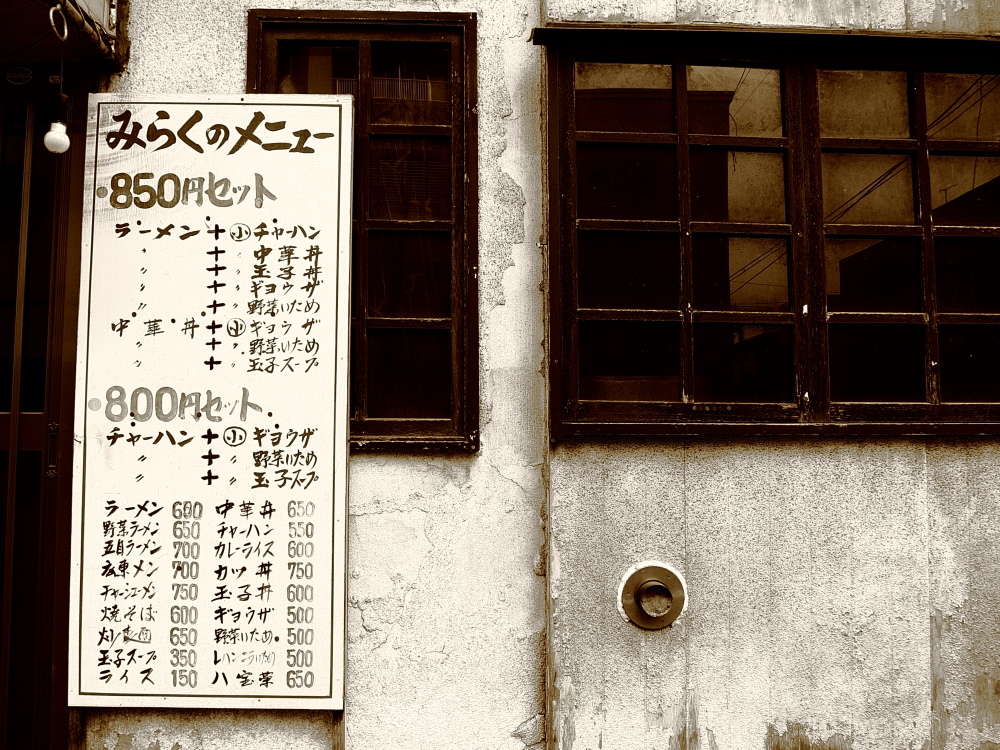 みらくのメニュー
850円セット
ラーメン + 小 チャーハン
〃 + 〃 中華丼
〃 + 〃 玉子丼
〃 + 〃 ギヨウザ
〃 + 〃 野菜いため
中華丼 + 小 ギヨウザ
〃 + 〃 野菜いため
〃 + 〃 玉子スープ
800円セット
チャーハン + 小 ギヨウザ
〃 + 〃 野菜いため
〃 + 〃 玉子スープ
ラーメン 600 中華丼 650
野菜ラーメン 650 チャーハン 550
五目ラーメン 700 カレーライス 600
広東メン 700 カツ丼 750
チャーシューメン 750 玉子丼 600
焼そば 600 ギヨウザ 500
650 野菜いため 500
玉子スープ 350 500
ライス 150 八宝菜 650